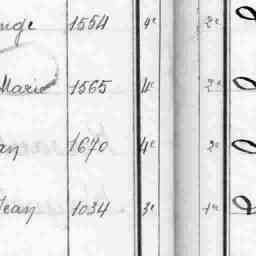 nge 1554 4e 2e
Marie 1565 4e 2e
an 1670 4e 2e
Jean 1034 3e 1re